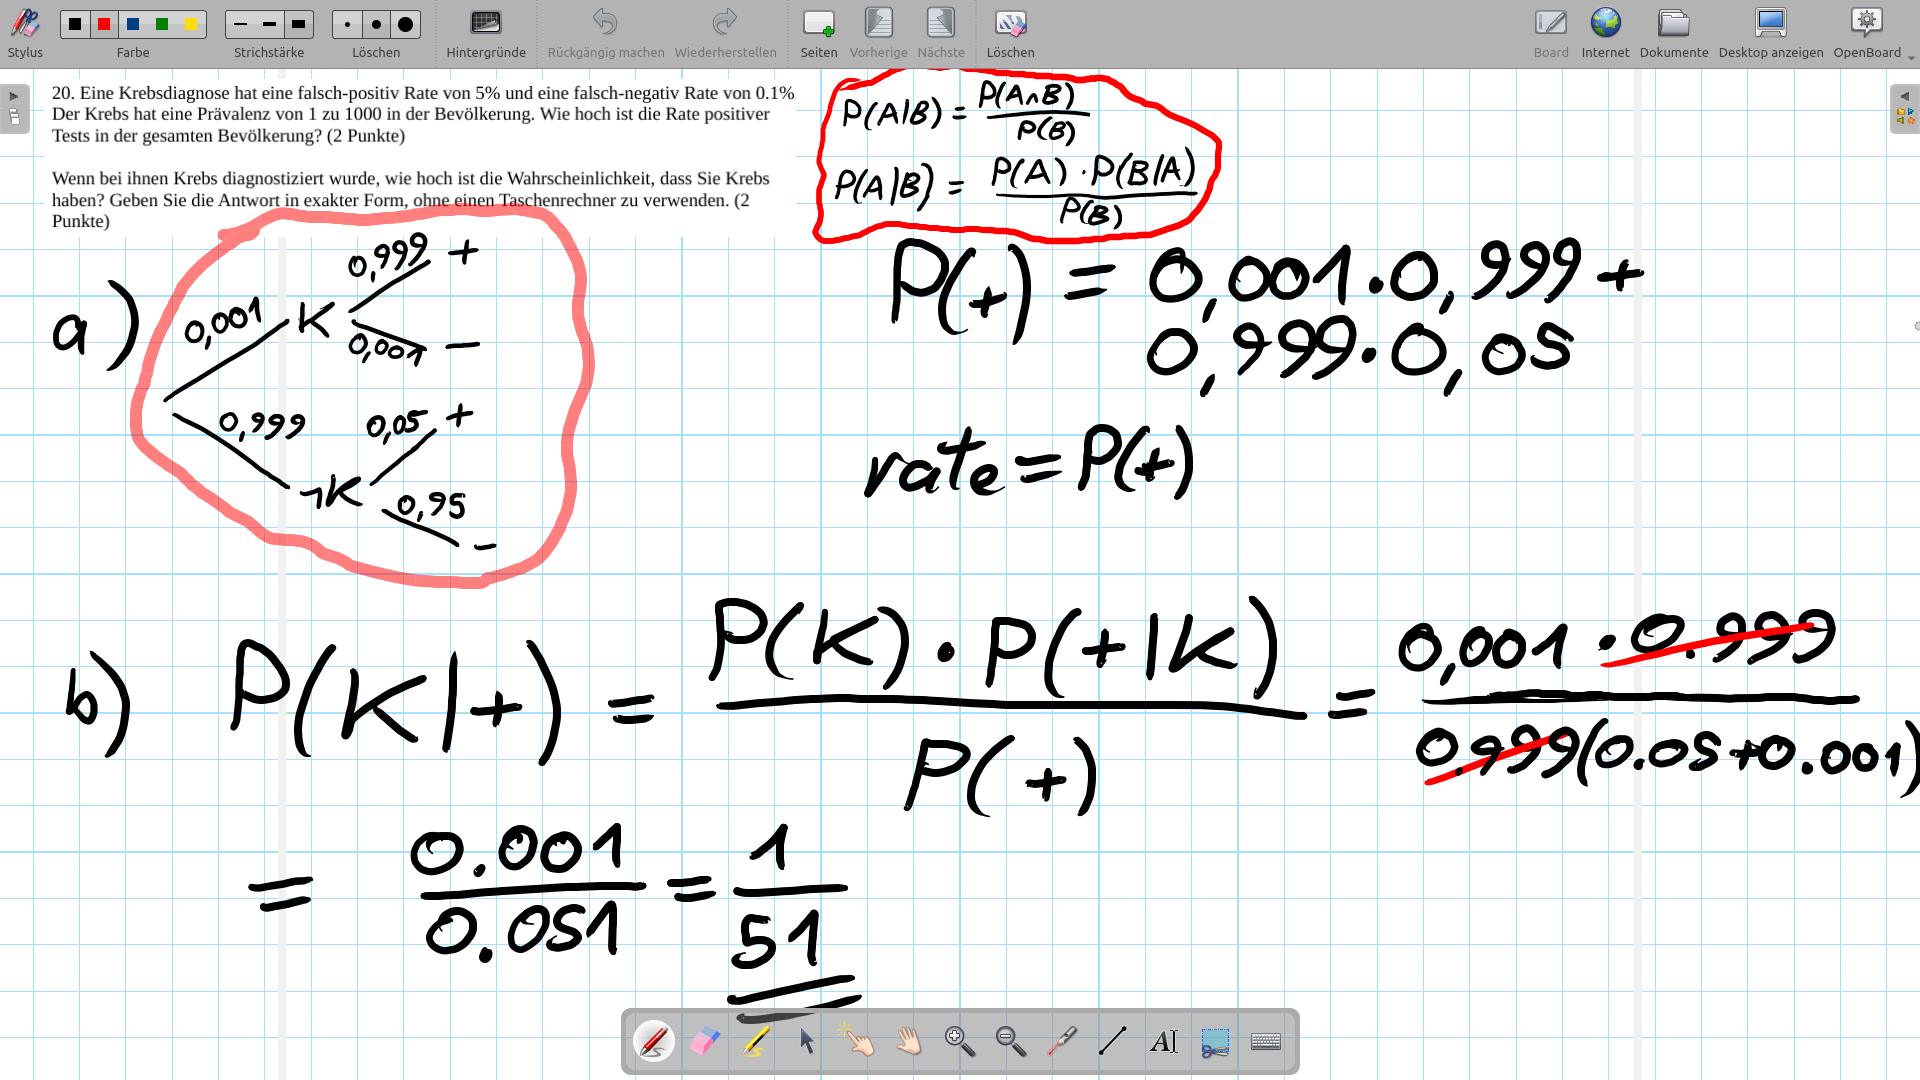 Stylus Farbe Strichstärke Löschen Hintergründe Rückgängig machen Wiederherstellen Seiten Vorherige Nächste Löschen Board Internet Dokumente Desktop anzeigen OpenBoard
20. Eine Krebsdiagnose hat eine falsch-positiv Rate von 5% und eine falsch-negativ Rate von 0.1%
Der Krebs hat eine Prävalenz von 1 zu 1000 in der Bevölkerung. Wie hoch ist die Rate positiver
Tests in der gesamten Bevölkerung? (2 Punkte)
Wenn bei ihnen Krebs diagnostiziert wurde, wie hoch ist die Wahrscheinlichkeit, dass Sie Krebs
haben? Geben Sie die Antwort in exakter Form, ohne einen Taschenrechner zu verwenden. (2
Punkte)
P(A|B) = P(A∩B) / P(B)
P(A|B) = P(A) · P(B|A) / P(B)
a)
0,999 +
0,001 K
0,001 −
0,999 0,05 +
¬K
0,95
−
P(+) = 0,001 · 0,999 +
0,999 · 0,05
rate = P(+)
b) P(K|+) = P(K) · P(+|K) / P(+) = 0,001 · 0.999 / 0.999(0.05+0.001)
= 0.001 / 0.051 = 1 / 51
AI